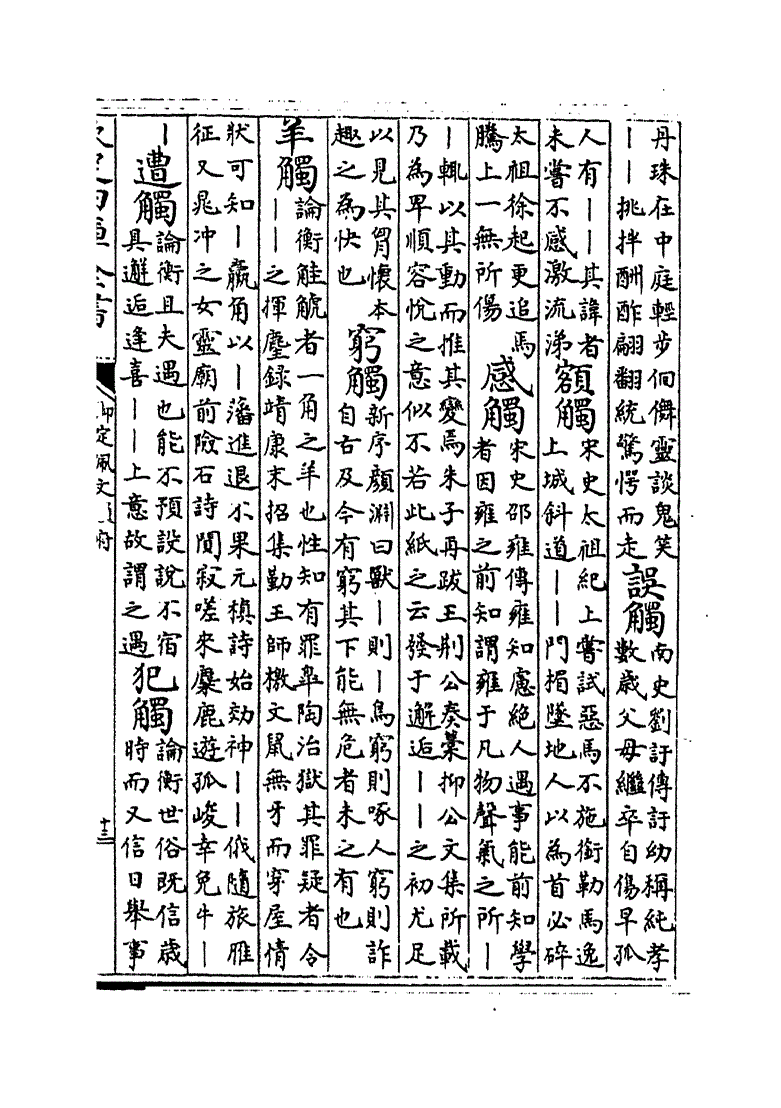 丹珠在中庭輕步佪儛靈談鬼笑
——挑拌酬酢翩翻統驚愕而走
誤觸
南史劉訏傳訏幼稱純孝
數歲父母繼卒自傷早孤
人有——其諱者
未嘗不感激流涕
額觸
宋史太祖紀上嘗試惡馬不施銜勒馬逸
上城斜道——門楣墜地人以為首必碎
太祖徐起更追馬
騰上一無所傷
感觸
宋史邵雍傳雍知慮絕人遇事能前知學
者因雍之前知謂雍于凡物聲氣之所—
—輒以其動而推其變焉朱子再跋王荆公奏藁抑公文集所載
乃為卑順容悅之意似不若此紙之云發于邂逅——之初尤足
以見其胷懷本
趣之為快也
窮觸
新序顔淵曰獸—則—鳥窮則啄人窮則詐
自古及今有窮其下能無危者未之有也
羊觸
論衡觟𧣾者一角之羊也性知有罪臯陶治獄其罪疑者令
——之揮麈録靖康末招集勤王師檄文鼠無牙而穿屋情
狀可知—羸角以—藩進退不果元稹詩始効神——俄隨旅雁
征又晁冲之女靈廟前險石詩閴寂嗟來麋鹿遊孤峻幸免牛—
—
遭觸
論衡且夫遇也能不預設說不宿
具邂逅逢喜——上意故謂之遇
犯觸
論衡世俗既信歲
時而又信日舉事
欽定四庫全書
御定佩文韻府
十三